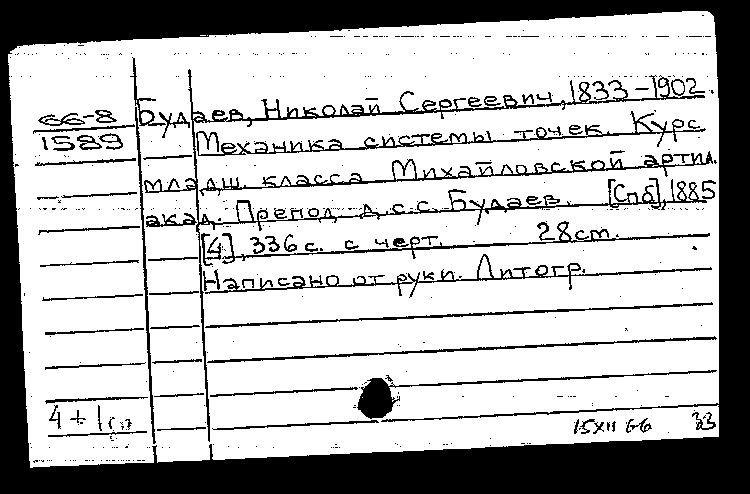 66-8
1589
Будаев, Николай Сергеевич, 1833-1902.
Механика системы точек. Курс
младш. класса Михайловской артил.
акад. Препод. д.с.с. Будаев. [Спб], 1885
[4], 336 с. с черт. 28 cm.
Написано от руки. Литогр.
4 + 1
15 XII 66 33